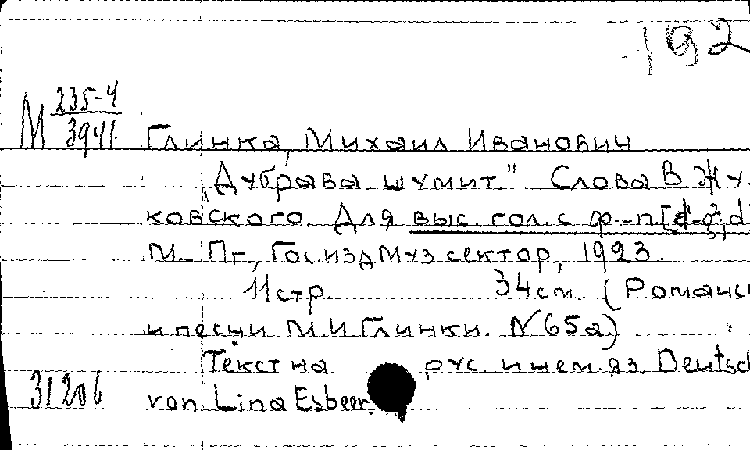 192
М 235-4
3941 Глинка, Михаил Иванович
„Дубрава шумит". Слова В. Жу-
ковского. Для выс. гол. с ф-п
М.-Пг., Гос. изд. Муз. сектор, 1923.
11 стр. 34 см. (Романсы
и песни М. И. Глинки. № 65а)
Текст на рус. и нем. яз. Deutsch
31206 von Lina Esbeer.